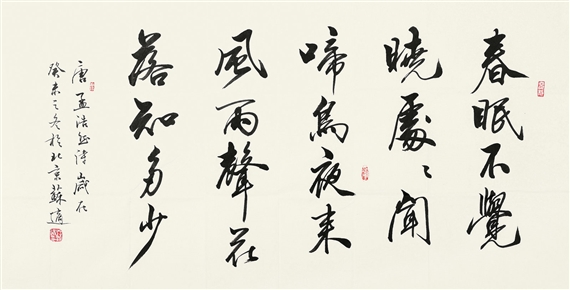 春眠不覺
曉處〻聞
啼鳥夜来
風雨聲花
落知多少
唐孟浩然诗歲在
癸未之冬於北京蘇適